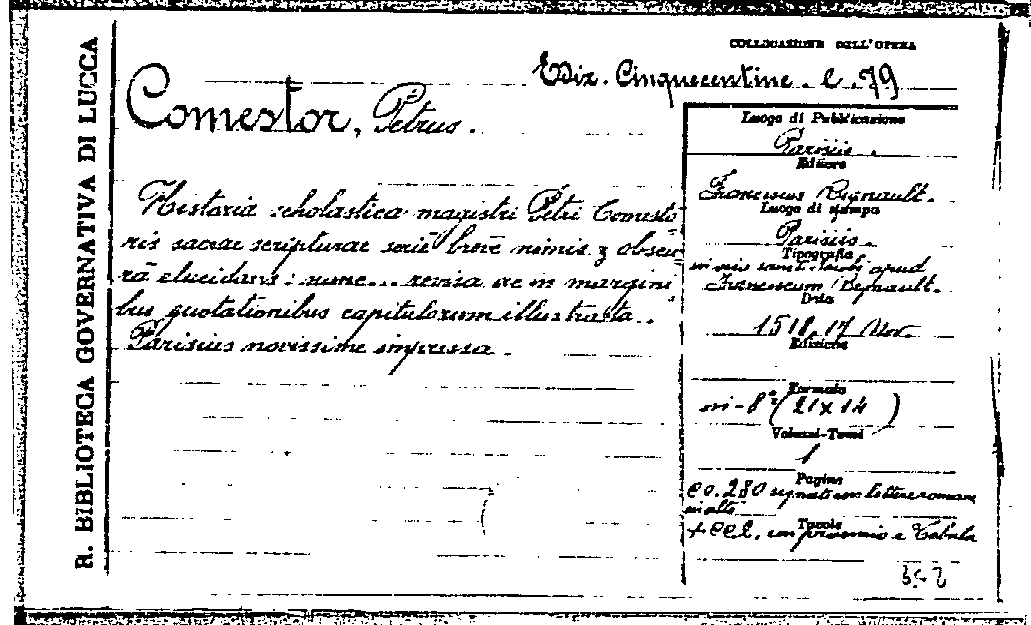 R. BIBLIOTECA GOVERNATIVA DI LUCCA
COLLOCAZIONE DELL'OPERA
Cinquecentine. C. 79
Comestor, Petrus.
Historia scholastica magistri Petri Comesto
ris sacrae scripturae seriē brevē nimis z obscu
rā elucidans: nunc... revisa ac in margini
bus quotationibus capitulorum illustrata.
Parisius novissime impressa.
Luogo di Pubblicazione
Parisiis.
Editore
Franciscus Regnault.
Luogo di stampa
Parisiis.
Tipografia
apud
Franciscum Regnault.
Data
1518, 17 Nov.
Edizione
Formato
in-8° (21x14)
Volumi-Tomi
1
Pagine
cc. 280 segnate con lettere romane
in alto
Tavole
+ cc. con proemio e Tabula